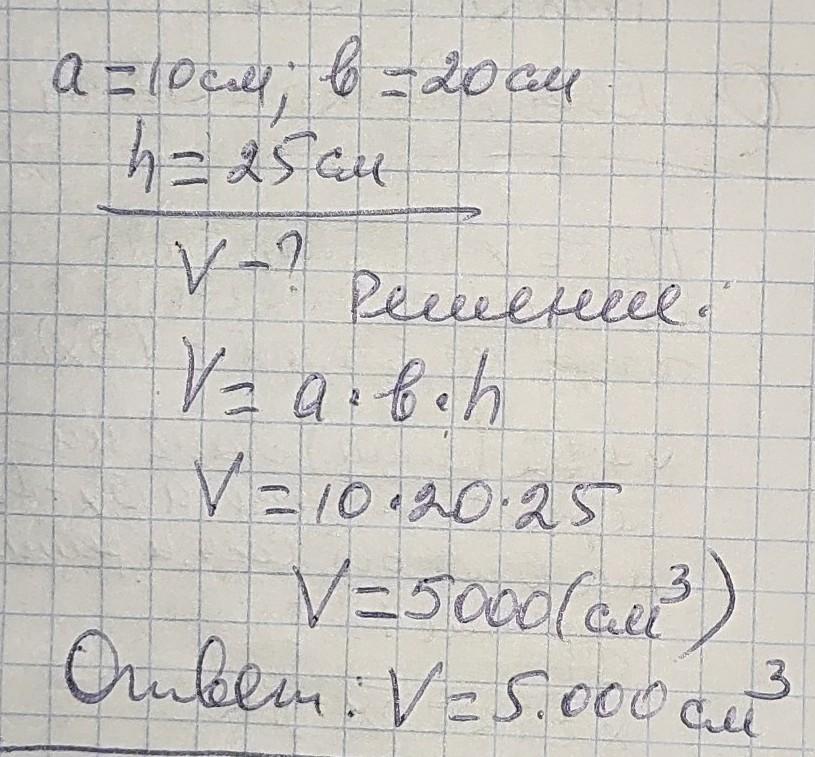 a = 10 см; в = 20 см
h = 25 см
V - ?
Решение:
V = a · в · h
V = 10 · 20 · 25
V = 5000 (см³)
Ответ: V = 5.000 см³